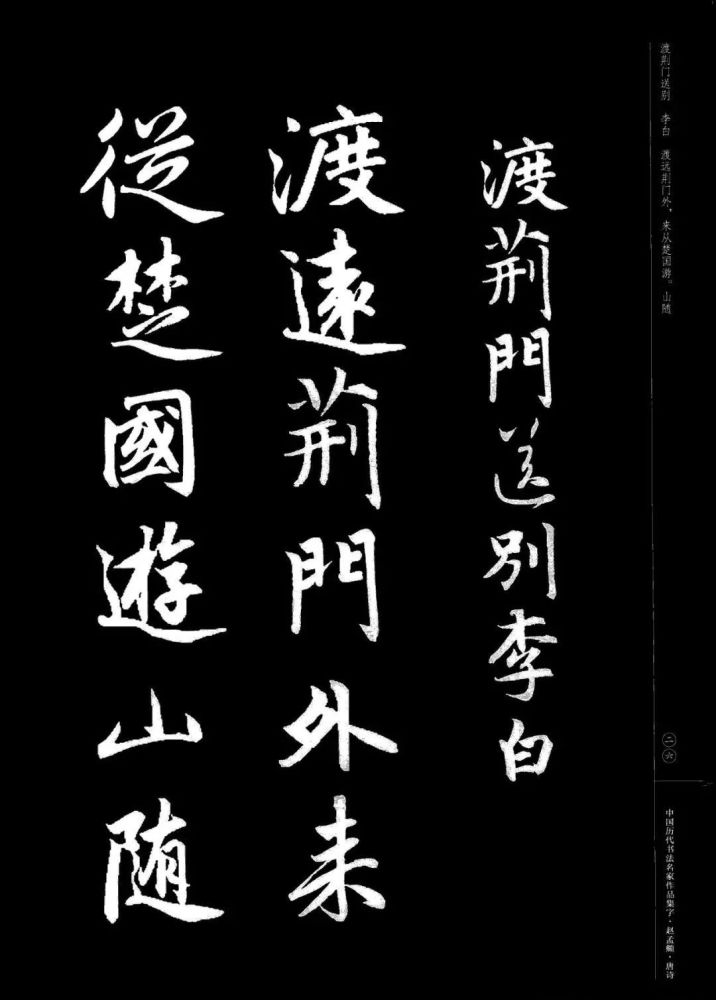 渡荆门送别　李白　渡远荆门外，来从楚国游。山随
渡荆門送别李白
渡遠荆門外来
從楚國遊山随
二六
中国历代书法名家作品集字·赵孟頫·唐诗